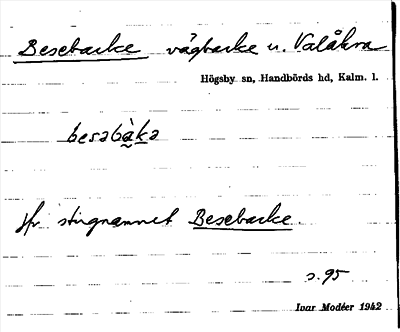 Besebacke vägbacke u. Valåkra
Högsby sn, Handbörds hd, Kalm. l.
besabàka
jfr stignamnet Besebacke
s. 95
Ivar Modéer 1942